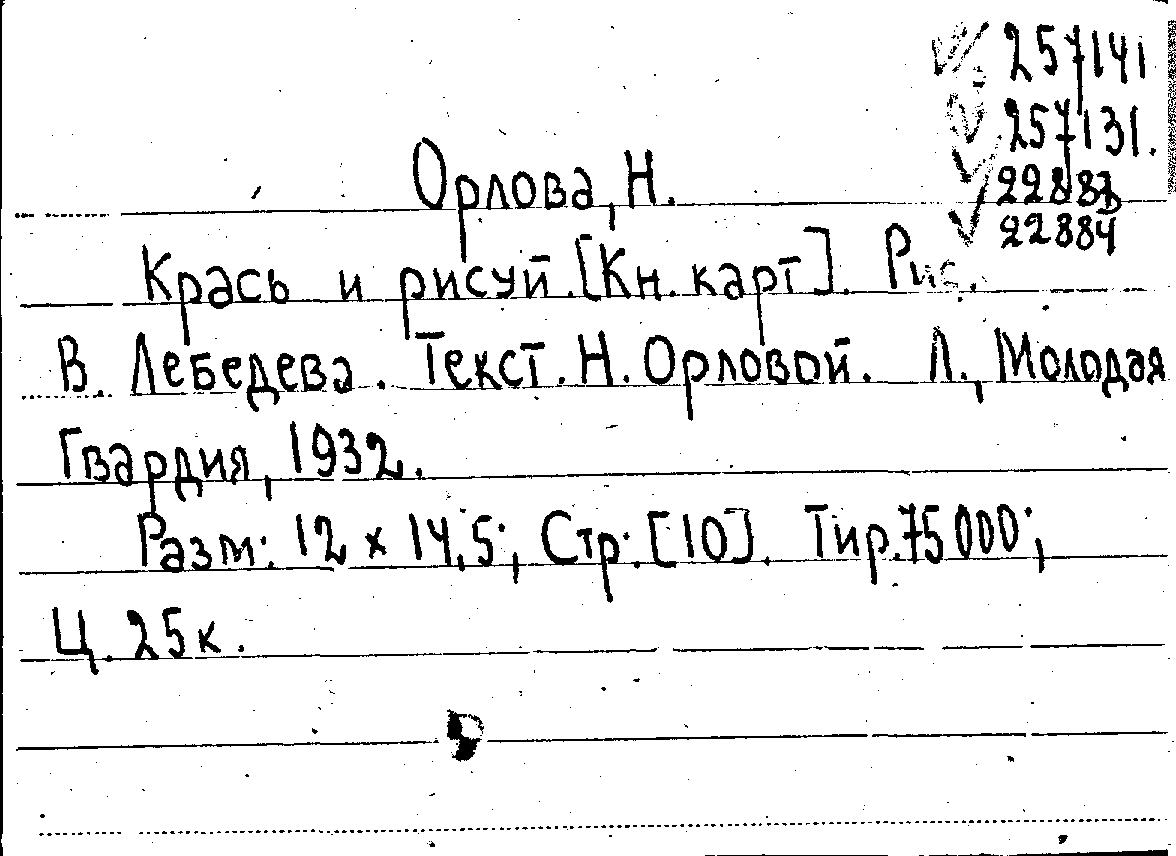 257141
257131.
22883
22884
Орлова, Н.
Крась и рисуй. [Кн. карт]. Рис.
В. Лебедева. Текст. Н. Орловой. Л., Молодая
Гвардия, 1932.
Разм: 12 x 14,5; Стр: [10]. Тир. 75000;
Ц. 25к.